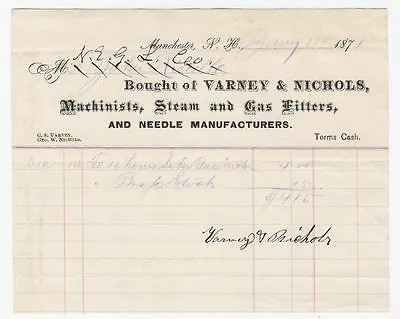 Manchester, N. H., 187
M N. E. G. L. Co.
Bought of VARNEY & NICHOLS,
Machinists, Steam and Gas Fitters,
AND NEEDLE MANUFACTURERS.
C. S. VARNEY.
GEO. W. NICHOLS.
Terms Cash.
Dec To 10 hours labor 4.00
" 15
$4.15
Varney & Nichols